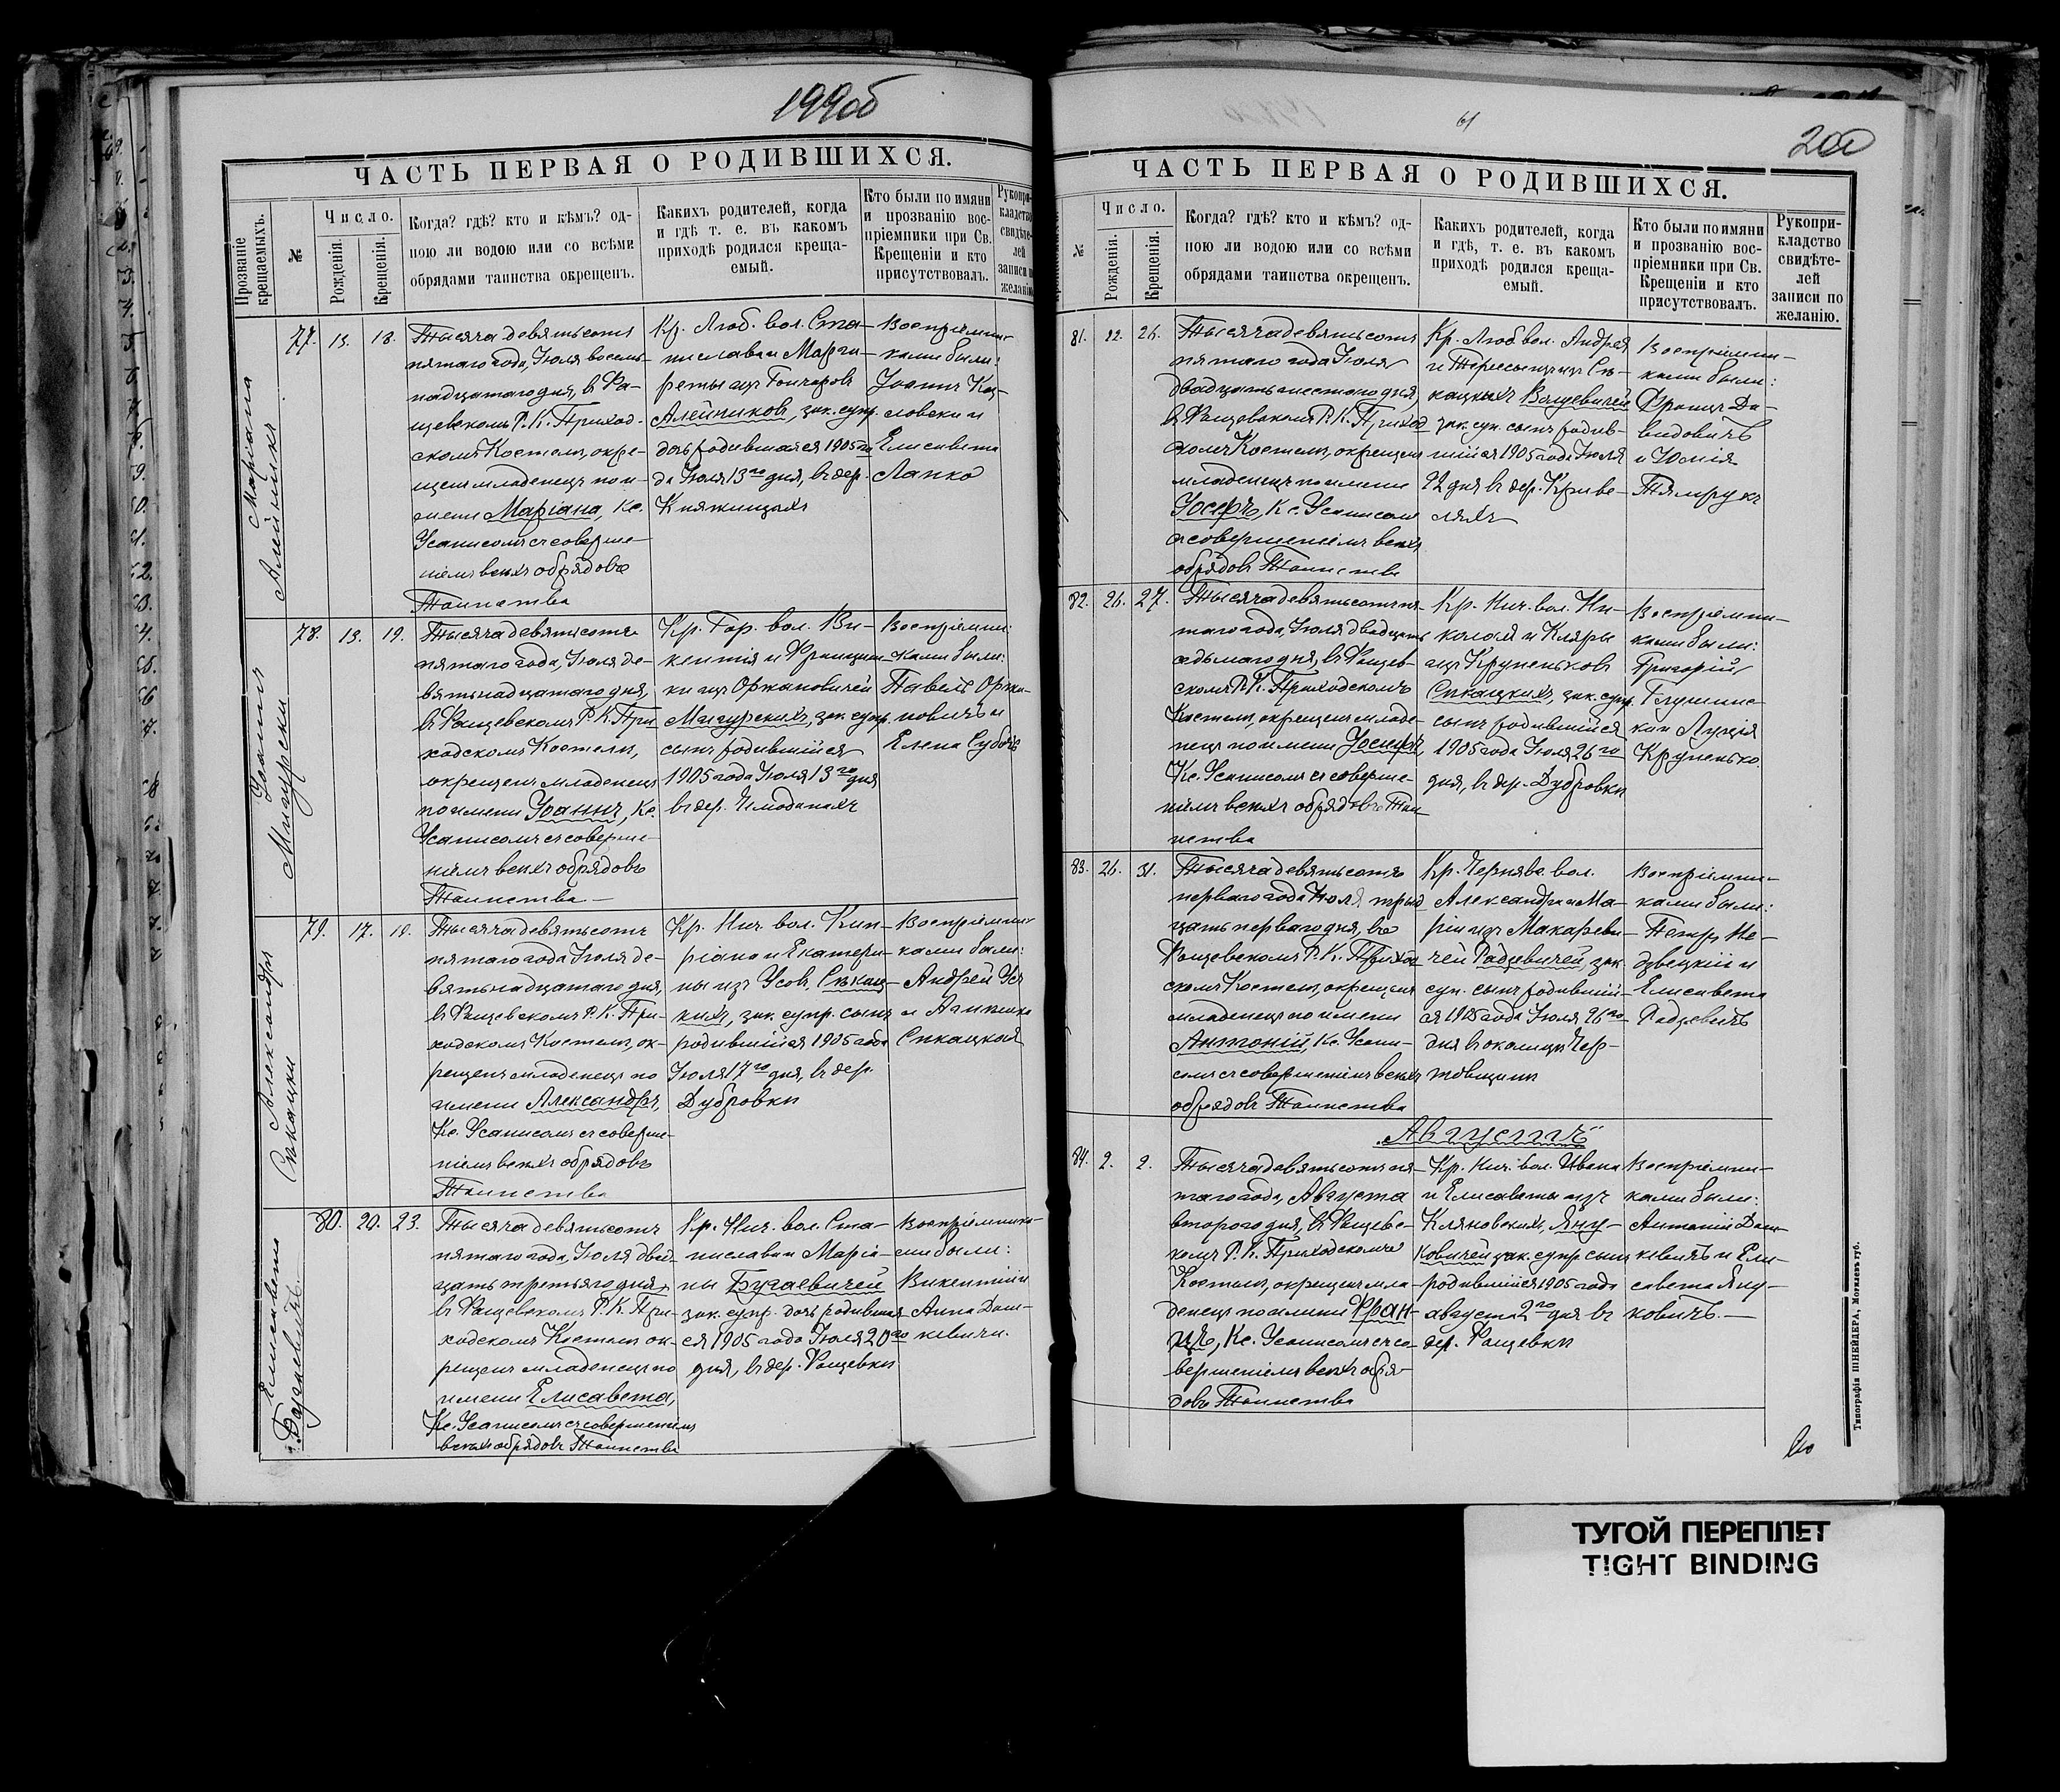 199об
ЧАСТЬ ПЕРВАЯ О РОДИВШИХСЯ.
Прозваніе крещаемыхъ.
№
Число.
Рожденія.
Крещенія.
Когда? гдѣ? кто и кѣмъ? од-
ною ли водою или со всѣми
обрядами таинства окрещенъ.
Какихъ родителей, когда
и гдѣ т. е. въ какомъ
приходѣ родился креща-
емый.
Кто были по имяни
и прозванію вос-
пріемники при Св.
Крещеніи и кто
присутствовалъ.
Рукопри-
кладство
свидѣте-
лей
записи по
желанію
Маріана
Алейникъ
77. 13. 18.
Тысяча девятьсотъ
пятаго года, Іюля восем-
надцатаго дня, въ Фа-
щевскомъ Р. К. Приход-
скомъ Костелѣ, окре-
щенъ младенецъ по и-
мени Маріана, Кс.
Усаписомъ съ соверше-
ніемъ всѣхъ обрядовъ
Таинства
Кр. Люб. вол. Ста-
нислава и Марга-
реты изъ Гончаровъ
Алейниковъ, зак. супр.
дочь родившаяся 1905 го-
да Іюля 13го дня, въ дер.
Княжицахъ
Воспріемни-
ками были:
Іоаннъ Коз-
ловски и
Елисавета
Лапко
Іоаннъ
Мигурски
78. 13. 19.
Тысяча девятьсотъ
пятаго года, Іюля де-
вятьнадцатаго дня,
въ Фащевскомъ Р. К. При-
ходскомъ Костелѣ,
окрещенъ младенецъ
по имени Іоаннъ, Кс.
Усаписомъ съ соверше-
ніемъ всѣхъ обрядовъ
Таинства
Кр. Гор. вол. Ви-
кентія и Францишк-
ки изъ Оржановичей
Мигурскихъ, зак. супр.
сынъ родившійся
1905 года Іюля 13го дня
въ дер. Чемоданахъ
Воспріемни-
ками были:
Павелъ Оржа-
новичъ и
Елена Субочъ
Александръ
Спкацки
79. 17. 19.
Тысяча девятьсотъ
пятаго года Іюля де-
вятьнадцатаго дня,
въ Фащевскомъ Р. К. При-
ходскомъ Костелѣ, ок-
рещенъ младенецъ по
имени Александръ,
Кс. Усаписомъ съ соверше-
ніемъ всѣхъ обрядовъ
Таинства
Кр. Нич. вол. Кип-
ріана и Екатери-
ны изъ Усовъ, Спкац-
кихъ, зак. супр. сынъ
родившійся 1905 года
Іюля 17го дня, въ дер.
Дубровки
Воспріемни-
ками были:
Андрей Усъ
и
Спкацкая
Елисавета
Бугаевичъ
80. 20. 23.
Тысяча девятьсотъ
пятаго года, Іюля двад-
цать третьяго дня,
въ Фащевскомъ Р. К. При-
ходскомъ Костелѣ ок-
рещенъ младенецъ по
имени Елисавета,
Кс. Усаписомъ съ совершеніемъ
всѣхъ обрядовъ Таинства
Кр. Нич. вол. Ста-
нислава и Маріа-
ны Бугаевичей
зак. супр. дочь родившая-
ся 1905 года Іюля 20го
дня, въ дер. Фащевки
Воспріемника-
ми были:
Викентій и
Анна Даш-
кевичи.
61
200
ЧАСТЬ ПЕРВАЯ О РОДИВШИХСЯ.
№
Число.
Рожденія.
Крещенія.
Когда? гдѣ? кто и кѣмъ? од-
ною ли водою или со всѣми
обрядами таинства окрещенъ.
Какихъ родителей, когда
и гдѣ, т. е. въ какомъ
приходѣ родился креща-
емый.
Кто были по имяни
и прозванію вос-
пріемники при Св.
Крещеніи и кто
присутствовалъ.
Рукопри-
кладство
свидѣте-
лей
записи по
желанію.
81. 22. 26.
Тысяча девятьсотъ
пятаго года Іюля
двадцать шестаго дня,
въ Фащевскомъ Р. К. Приход-
скомъ Костелѣ, окрещенъ
младенецъ по имени
Іосифъ, Кс. Усаписомъ
съ совершеніемъ всѣхъ
обрядовъ Таинства
Кр. Люб. вол. Андрея
и Тересы изъ Сп-
кацкихъ
зак. суп. сынъ родив-
шійся 1905 года Іюля
22 дня въ дер. Криве-
ляхъ
Воспріемни-
ками были:
Францъ Да-
видовичъ
и Юлія
82. 26. 27.
Тысяча девятьсотъ пя-
таго года, Іюля двадцать
седьмаго дня, въ Фащев-
скомъ Р. К. Приходскомъ
Костелѣ, окрещенъ младе-
нецъ по имени Іосифъ,
Кс. Усаписомъ съ соверше-
ніемъ всѣхъ обрядовъ Таи-
нства
Кр. Нич. вол. Ни-
колая и Кляры
изъ Крупеньковъ
Спкацкихъ, зак. супр.
сынъ родившійся
1905 года Іюля 26го
дня, въ дер. Дубровки
Воспріемни-
ками были:
Григорій
Глушинс-
ки и Луція
Крупенько
83. 26. 31.
Тысяча девятьсотъ
перваго года Іюля трид-
цать перваго дня, въ
Фащевскомъ Р. К. Приход-
скомъ Костелѣ, окрещенъ
младенецъ по имени
Антоній, Кс. Усапи-
сомъ съ совершеніемъ всѣхъ
обрядовъ Таинства
Кр. Чернявс. вол.
Александра и Ма-
ріи изъ Макареви-
чей Радзевичей, зак.
суп. сынъ родивший-
ся 1905 года Іюля 26го
дня въ околицѣ Чер-
товщинѣ
Воспріемни-
ками были:
Петръ Не-
дзвецкій и
Елисавета
Радзевичъ
Августъ
84. 2. 2.
Тысяча девятьсотъ пя-
таго года, Августа
втораго дня, въ Фащевс-
комъ Р. К. Приходскомъ
Костелѣ, окрещенъ мла-
денецъ по имени Фран-
цъ, Кс. Усаписомъ съ со-
вершеніемъ всѣхъ обря-
довъ Таинства
Кр. Нич. вол. Ивана
и Елисаветы изъ
Кляновскихъ, Яну-
ковичей зак. супр. сынъ
родившійся 1905 года
августа 2го дня въ
дер. Фащевки
Воспріемни-
ками были:
Антоній Даш-
кевичъ и Ели-
савета Яну-
ковичъ.
Типографія ШНЕЙДЕРА, Могилевъ губ.
ТУГОЙ ПЕРЕПЛЕТ
TIGHT BINDING